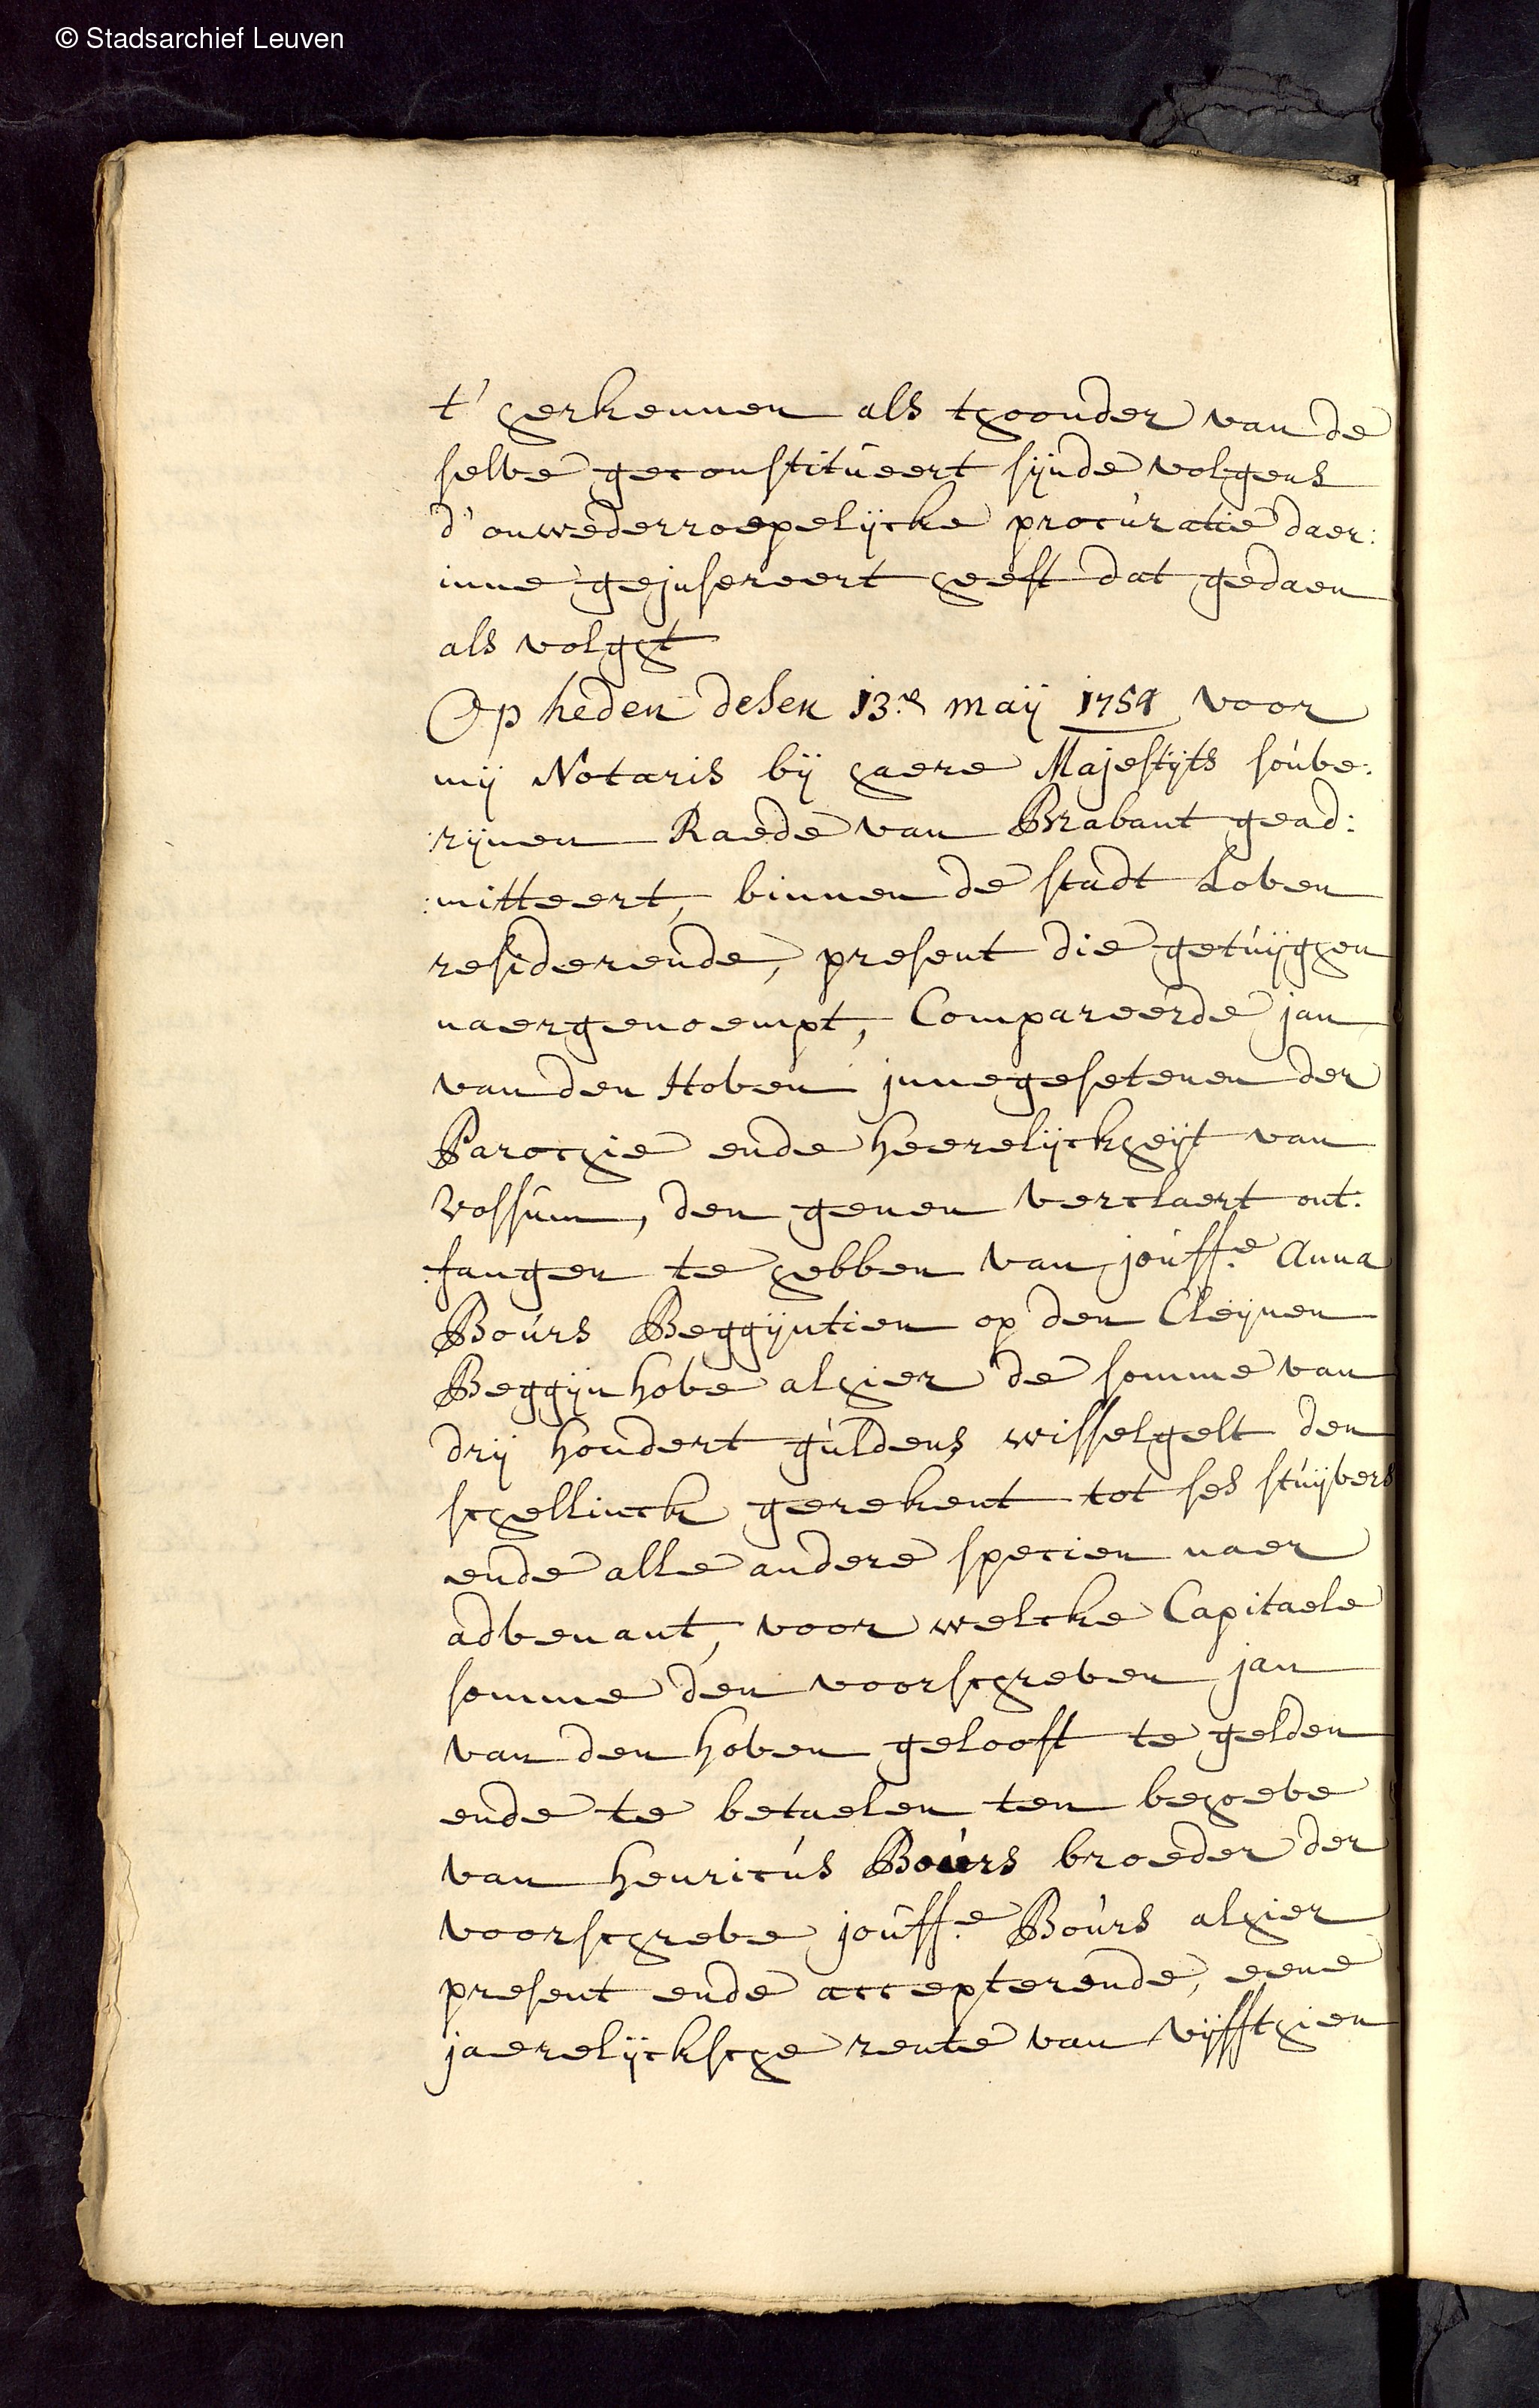 © Stadsarchief Leuven
t' herkennen als thoonder van de
selve geconstitúeert sijnde volgens
d'onwederroepelijcke procúratie daer:
inne geinsereert heeft dat gedaen
als volght
Op heden desen 13.e maij 1759 voor
mij Notaris bij haere Majestijts soúve:
:rijnen Raede van Brabant gead:
:mitteert, binnen de stadt Loven
residerende, present die getúijghen
naergenoempt, Compareerde jan
van den Hoven innegesetenen der
Parochie ende heerelijckheijt van
Vossúm, den genen verclaert ont:
:fangen te hebben van joúff.e Anna
Boúrs Beggijntien op den Cleijnen
Beggijn hove alhier de somme van
drij hondert gúldens wisselgelt den
schellinck gerekent tot ses stúijvers
ende alle andere specien naer
advenant, voor welcke Capitaele
somme den voorschreven jan
van den hoven gelooft te gelden
ende te betaelen ten behoeve
van henricús Boúrs broeder der
voorschreve joúff.e Boúrs alhier
present ende accepterende, eene
jaerelijcksche rente van vijffthien